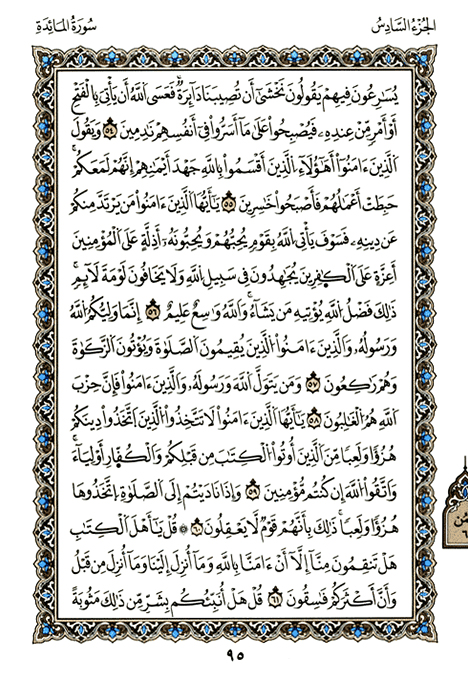 الجُزْءُ السَّادِسُ
سُورَةُ المَائِدَةِ
يُسَٰرِعُونَ فِيهِمْ يَقُولُونَ نَخْشَىٰ أَن تُصِيبَنَا دَآئِرَةٌ فَعَسَى اللَّهُ أَن يَأْتِيَ بِالْفَتْحِ
أَوْ أَمْرٍ مِّنْ عِندِهِۦ فَيُصْبِحُواْ عَلَىٰ مَآ أَسَرُّواْ فِىٓ أَنفُسِهِمْ نَٰدِمِينَ ٥٤ وَيَقُولَ
الَّذِينَ ءَامَنُوٓاْ أَهَٰٓؤُلَآءِ الَّذِينَ أَقْسَمُواْ بِاللَّهِ جَهْدَ أَيْمَٰنِهِمْ إِنَّهُمْ لَمَعَكُمْ
حَبِطَتْ أَعْمَٰلُهُمْ فَأَصْبَحُواْ خَٰسِرِينَ ٥٥ يَٰٓأَيُّهَا الَّذِينَ ءَامَنُواْ مَن يَرْتَدَّ مِنكُمْ
عَن دِينِهِۦ فَسَوْفَ يَأْتِى اللَّهُ بِقَوْمٍ يُحِبُّهُمْ وَيُحِبُّونَهُۥٓ أَذِلَّةٍ عَلَى الْمُؤْمِنِينَ
أَعِزَّةٍ عَلَى الْكَٰفِرِينَ يُجَٰهِدُونَ فِى سَبِيلِ اللَّهِ وَلَا يَخَافُونَ لَوْمَةَ لَآئِمٍ
ذَٰلِكَ فَضْلُ اللَّهِ يُؤْتِيهِ مَن يَشَآءُ وَاللَّهُ وَٰسِعٌ عَلِيمٌ ٥٦ إِنَّمَا وَلِيُّكُمُ اللَّهُ
وَرَسُولُهُۥ وَالَّذِينَ ءَامَنُواْ الَّذِينَ يُقِيمُونَ الصَّلَوٰةَ وَيُؤْتُونَ الزَّكَوٰةَ
وَهُمْ رَٰكِعُونَ ٥٧ وَمَن يَتَوَلَّ اللَّهَ وَرَسُولَهُۥ وَالَّذِينَ ءَامَنُواْ فَإِنَّ حِزْبَ
اللَّهِ هُمُ الْغَٰلِبُونَ ٥٨ يَٰٓأَيُّهَا الَّذِينَ ءَامَنُواْ لَا تَتَّخِذُواْ الَّذِينَ اتَّخَذُواْ دِينَكُمْ
هُزُؤًا وَلَعِبًا مِّنَ الَّذِينَ أُوتُواْ الْكِتَٰبَ مِن قَبْلِكُمْ وَالْكُفَّارِ أَوْلِيَآءَ
وَاتَّقُواْ اللَّهَ إِن كُنتُم مُّؤْمِنِينَ ٥٩ وَإِذَا نَادَيْتُمْ إِلَى الصَّلَوٰةِ اتَّخَذُوهَا
هُزُؤًا وَلَعِبًا ذَٰلِكَ بِأَنَّهُمْ قَوْمٌ لَّا يَعْقِلُونَ ٦٠ قُلْ يَٰٓأَهْلَ الْكِتَٰبِ
هَلْ تَنقِمُونَ مِنَّآ إِلَّآ أَنْ ءَامَنَّا بِاللَّهِ وَمَآ أُنزِلَ إِلَيْنَا وَمَآ أُنزِلَ مِن قَبْلُ
وَأَنَّ أَكْثَرَكُمْ فَٰسِقُونَ ٦١ قُلْ هَلْ أُنَبِّئُكُم بِشَرٍّ مِّن ذَٰلِكَ مَثُوبَةً
٩٥